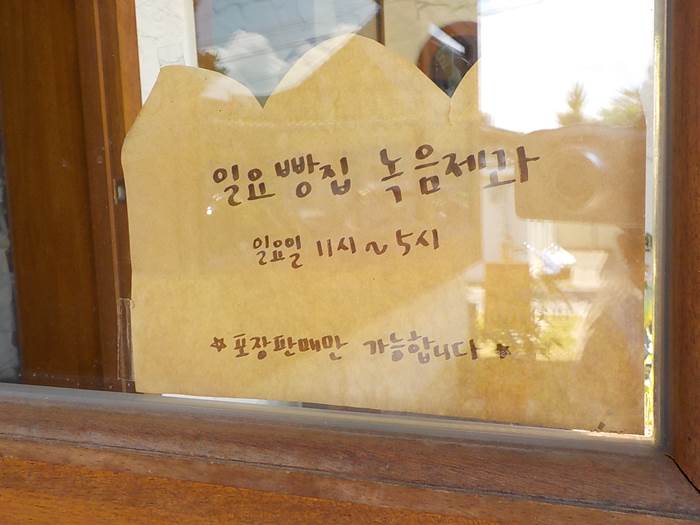 일요빵집 녹음제과
일요일 11시~5시
☆포장판매만 가능합니다☆